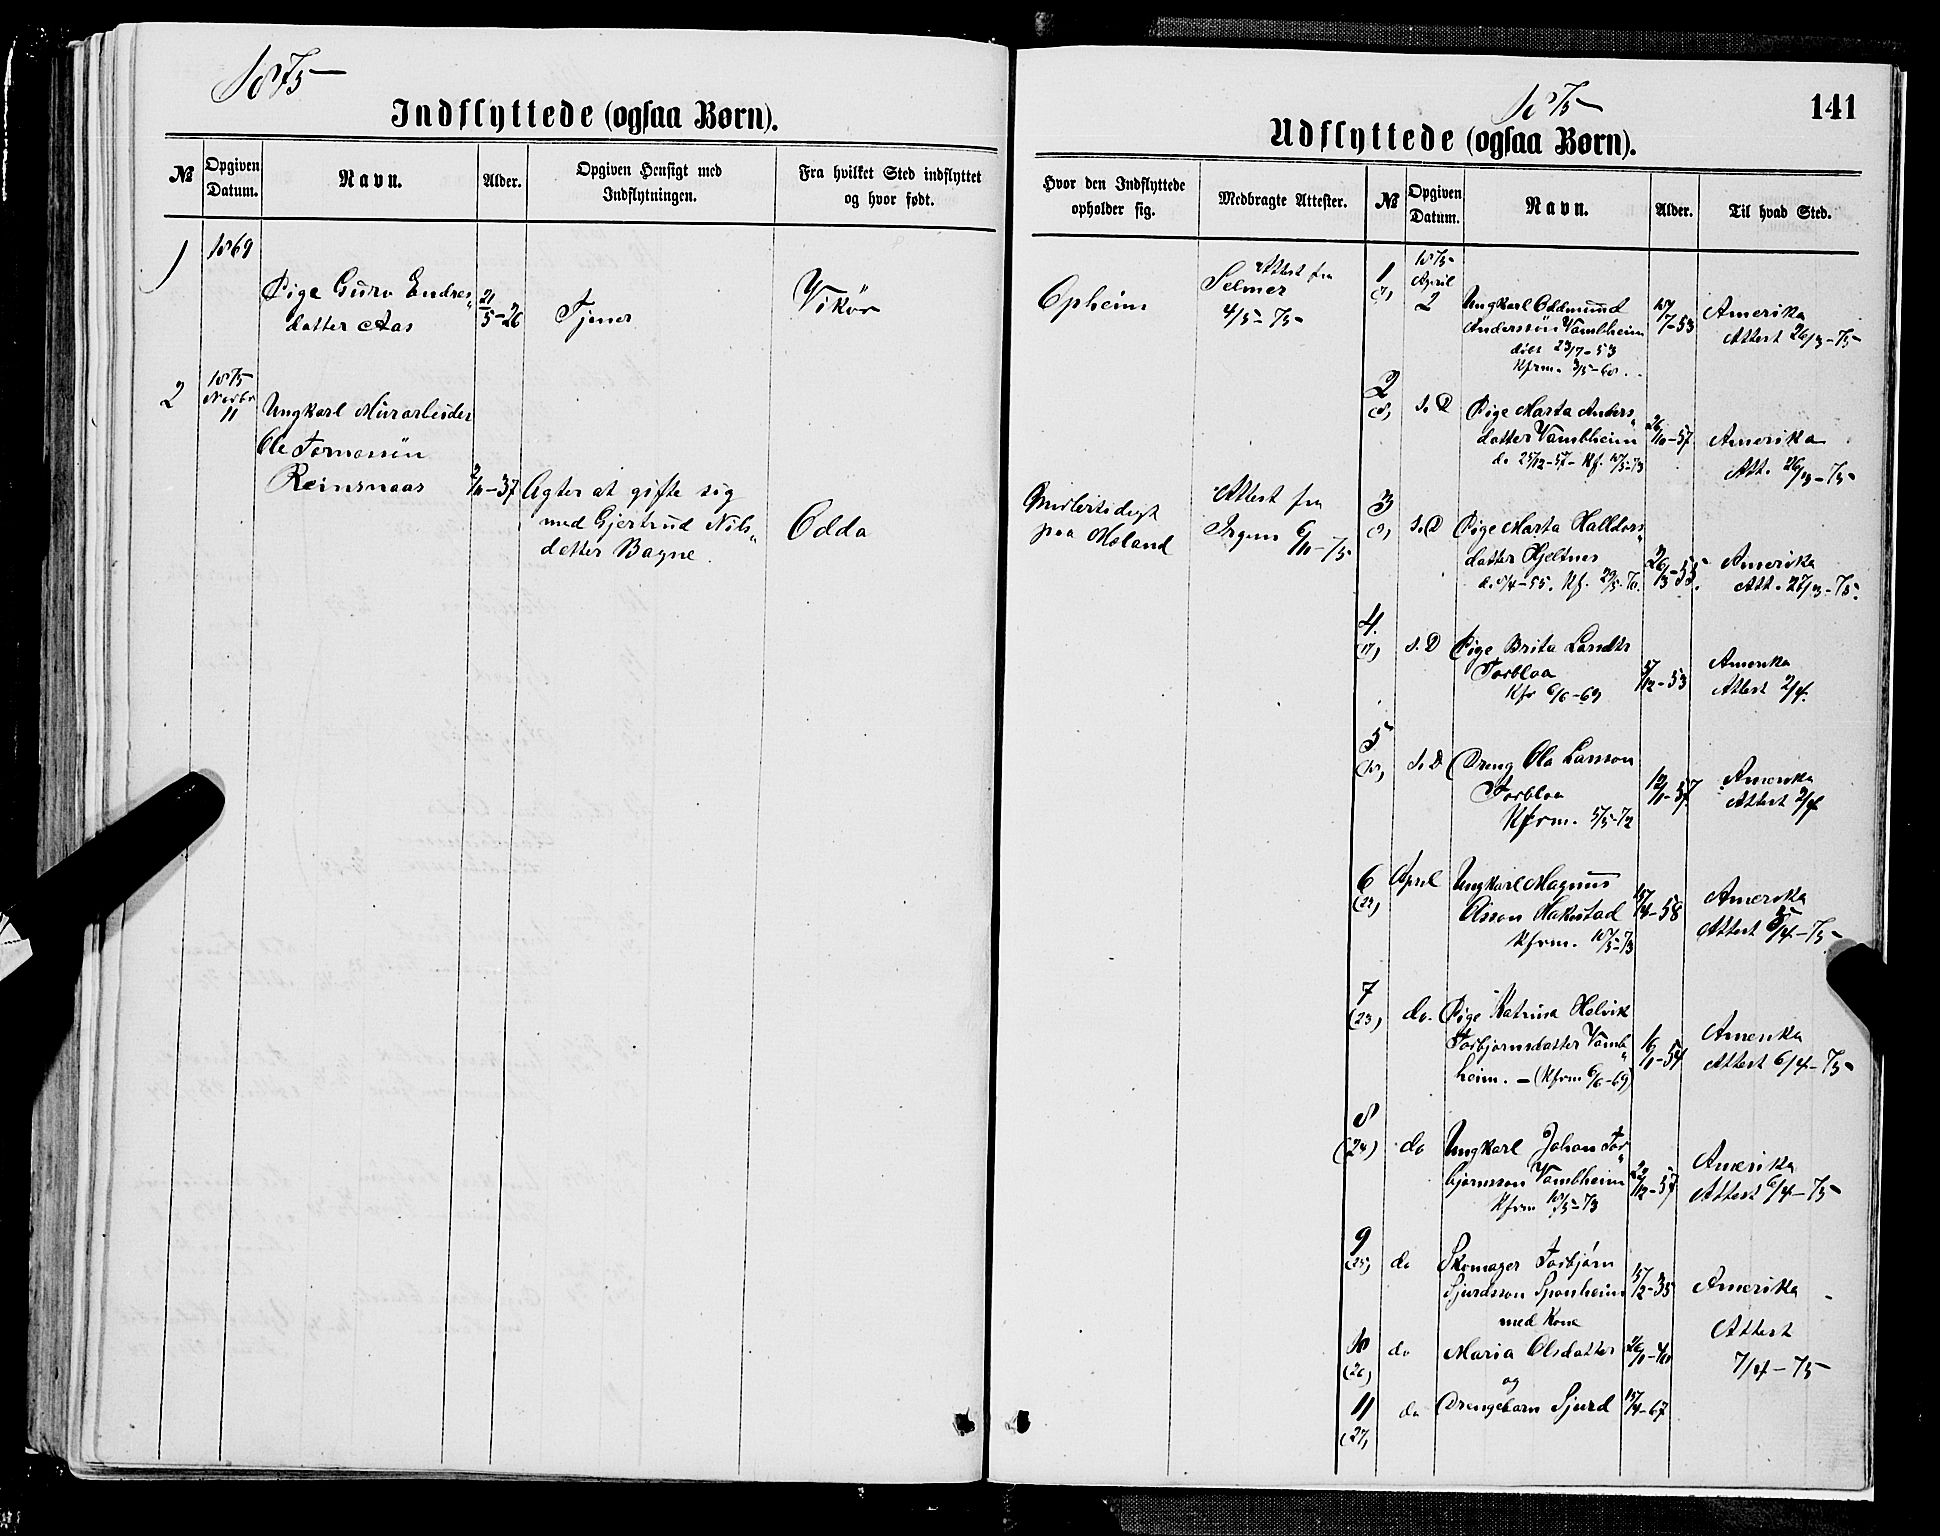 1875
Indflyttede (ogsaa Børn).
№
Opgiven Datum.
Navn.
Alder.
Opgiven Hensigt med Indflytningen.
Fra hvilket Sted indflyttet og hvor født.
1
1869
Pige Guro Endres„
datter Aas
21/5-26
Tjener
Vikör
2
1875
Novbr
11
Ungkarl Murarbeider
Ole Tomassön
Reinsnaas
2/11-37
Agter at gifte sig
med Gjertrud Nils„
datter Bagne.
Odda
1875
141
Udflyttede (ogsaa Børn).
Hvor den Indflyttede opholder sig.
Medbragte Attester.
№
Opgiven Datum.
Navn.
Alder.
Til hvad Sted.
Opheim
Attest fra
Selmer
4/5-75
paa Moland
Attest fra
6/11-75
1
1875
April
2
Ungkarl Oddmund
Anderssön Vambheim
døbt 23/7-53
Kfrm.
7-53
Amerika
Attest 26/3-75
2
s. D
Pige Marta Anders„
datter Vambheim
d. 25/12-57- Kf. 18/5-73
26/11-57
Amerika
Att. 26/3-75
3
s. D
Pige Marta Halldors„
datter Hjeltnes
d. 8/4-55. Kf. 29/5-70.
26/3-55.
Amerika
Att. 27/3-75.
4.
s. D
Pige Brita Larsdtr
Torbloa
Kfr 6/6-69
5/12-53
Amerika
Attest 2/4.
5
s. D
Dreng Ola Larsson
Torbloa
Kfrm. 5/5-72
12/11-57
Amerika
Attest 2/4
6
(22)
April
Ungkarl Magnus
Olsson Hakestad
Kfrm. 18/5-73
15/4-58
Amerika
Attest 5/4-75
7
(23)
do.
Pige Katrina Holvik
Torbjornsdatter Vamb„
heim. - (Kfrm 6/6-69)
16/1-54
Amerika
Attest 6/4-75
8
(24)
do
Ungkarl Johan Tor„
bjørnsson Vambheim
Kfrm 18/5-73
22/12-57
Amerika
Attest 6/4-75
9
(25)
do
Skomager Torbjörn
Sjurdsson Sponheim
med Kone
15/2-35
Amerika
10
(26)
do
Maria Olsdatter
og
26/11-40
Attest
7/4-75
11
(27)
do
Drengebarn Sjurd
15/4-67